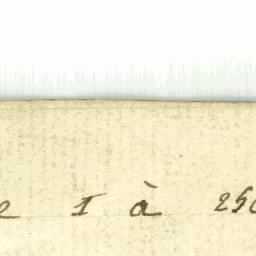 e 1 à 250